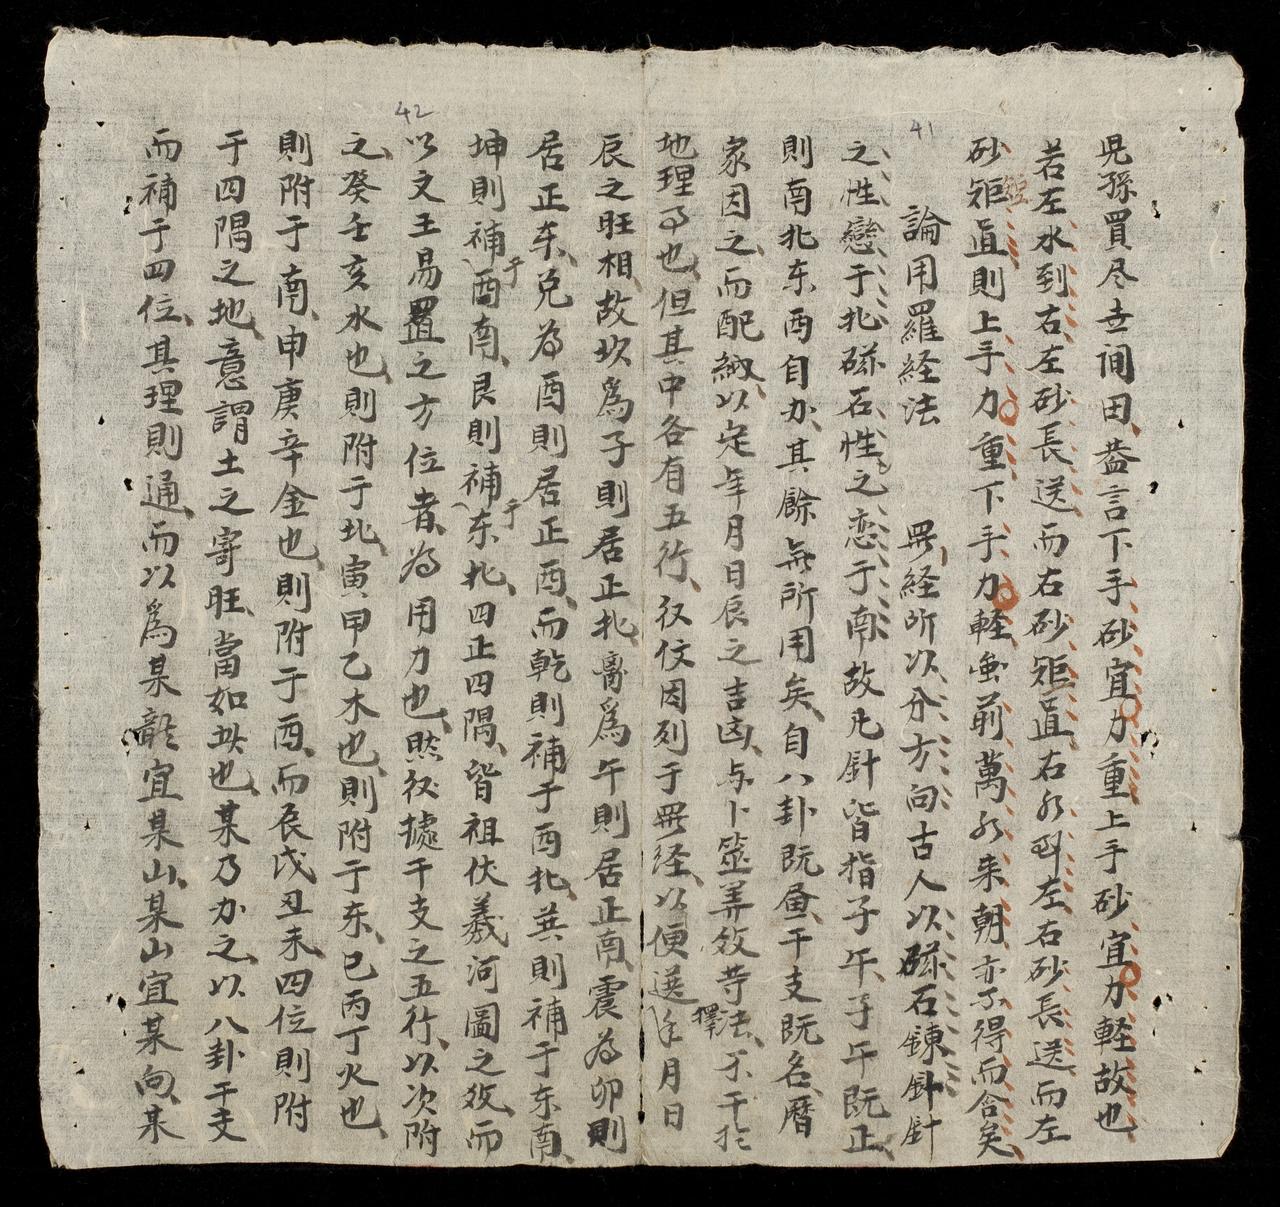 41
42
児孫買尽世间田、盖言下手砂宜力重上手砂宜力軽故也
若左水到右左砂長送而右砂短直右水到左右砂長送而左
砂短直則上手力重下手力軽虽前萬水朱朝亦不得而合矣
論用羅経法 羅経所以分方向古人以磁石鍊針針
之性戀于北磁石性之恋于南故凡針皆指子午、子午既正
則南北东西自办其餘無所用矣自八卦既画、干支既名、曆
家因之而配納以定年月日辰之吉凶、与卜筮筭效等法、不干於
地理事也、但其中各有五行、後仗因列于羅経以便選擇年月日
辰之旺相、故坎爲子則居正北、离爲午則居正南、震为卯則
居正东、兑为酉則居正西、而乾則補于西北、巽則補于东南、
坤則補于西南、艮則補于东北、四正四隅、皆祖伏羲河圖之效、而
以文王易置之方位者为用力也、然後據干支之五行、以次附
之、癸壬亥水也、則附于北、寅甲乙木也、則附于东、巳丙丁火也、
則附于南、申庚辛金也、則附于酉、而辰戌丑未四位則附
于四隅之地、意謂土之寄旺、當如此也、某乃办之、以八卦干支
而補于四位、其理則通、而以爲某龍宜某山、某山宜某向、某